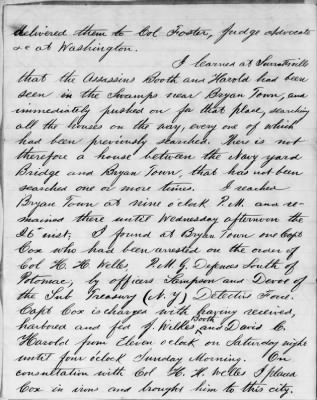 delivered them to Col Foster, judge advocate
&c at Washington.
I learned at Surrattsville
that the Assassins Booth and Harold had been
seen in the Swamps near Bryan Town, and
immediately pushed on for that place, searching
all the houses on the way, every one of which
had been previously searched. There is not
therefore a house between the Navy yard
Bridge and Bryan Town, that has not been
searched one or more times. I reached
Bryan Town at nine o'clock P.M. and re-
mained there until Wednesday afternoon the
26" inst; I found at Bryan Town one Capt
Cox who had been arrested on the order of
Col H. H. Wells P.M.G. Defences South of
Potomac, by officers Sampson and Devoe of
the Sub Treasury (N.Y) Detective Force.
Capt Cox is charged with having received,
harbored and fed J. Wilkes Booth and David C.
Harold from Eleven o'clock on Saturday night
until four o'clock Sunday Morning. On
consultation with Col H. H. Wells I placed
Cox in irons and brought him to this city.